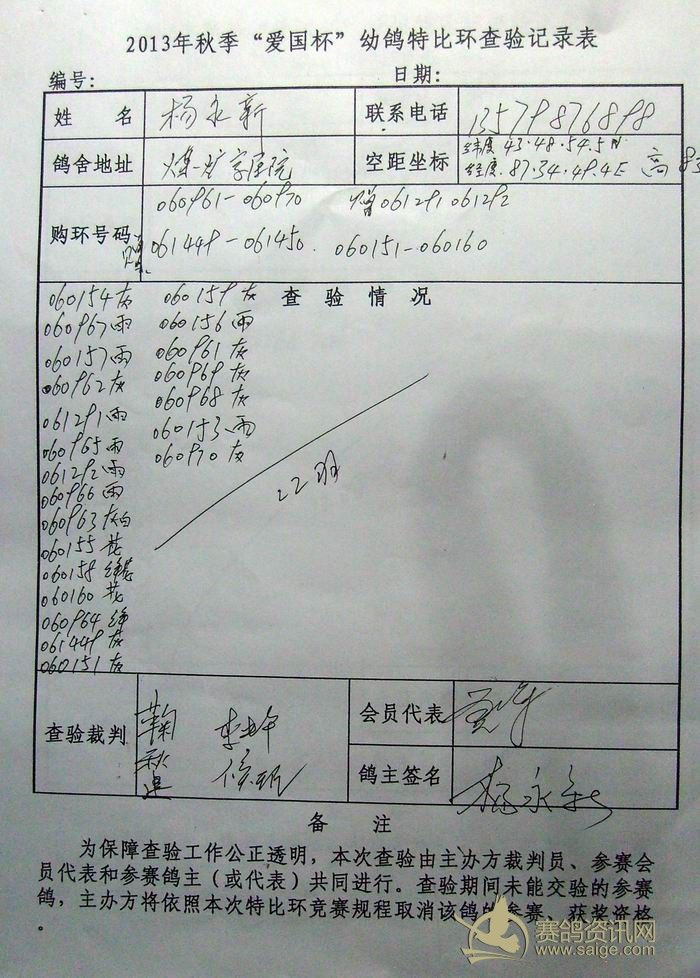 2013年秋季“爱国杯”幼鸽特比环查验记录表
编号： 日期：
姓 名 杨永新 联系电话 13579876898
鸽舍地址 煤矿学医院 空距坐标 纬度43.48.54.5N
经度.87.34.49.4E 高
购环号码 060961-060970 赠061291 061292
061449-061450. 060151-060160
查 验 情 况
060154灰 060159灰
060967雨 060156雨
060157雨 060961灰
060962灰 060969灰
061291雨 060968灰
060965雨 060153雨
061292雨 060970灰
060966雨
060963灰白
060155花
060158绛花
060160花
060964绛
061449灰
060151灰
22羽
查验裁判 会员代表
鸽主签名 杨永新
备 注
为保障查验工作公正透明，本次查验由主办方裁判员、参赛会
员代表和参赛鸽主（或代表）共同进行。查验期间未能交验的参赛
鸽，主办方将依照本次特比环竞赛规程取消该鸽的参赛、获奖资格
。
赛鸽资讯网
www.saige.com